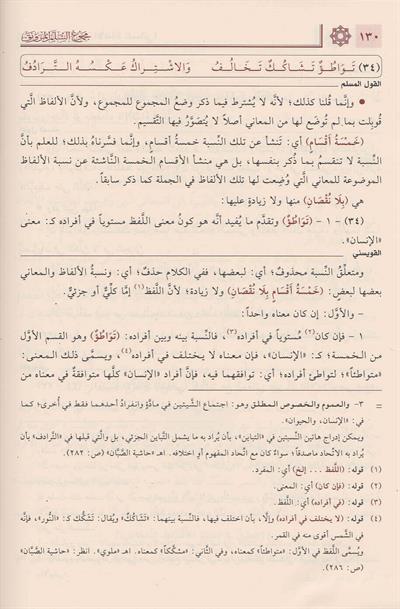 ١٣٠
(٣٤) تَوَاطُؤٌ تَشَاكُكٌ تَخَالُفُ وَالِاشْتِرَاكُ عَكْسُهُ التَّرَادُفُ
القول المسلم
• وإنَّما قُلنا كذلك؛ لأنَّه لا يُشترط فيما ذكر وضعُ المجموع للمجموع، ولأنَّ الألفاظ الَّتي
قُوبِلت بما لم يُوضَع لها من المعاني أصلاً لا يُتصَوَّرُ فيها التَّقسيم.
(خَمْسَةُ أَقْسَامٍ) أي: تَنشأ عن تلك النِّسبة خمسةُ أقسامٍ، وإنَّما فسَّرناهُ بذلك؛ للعلم بأنَّ
النِّسبة لا تنقسمُ بما ذُكر بنفسها، بل هي منشأ الأقسام الخمسة النَّاشئة عن نسبة الألفاظ
الموضوعة للمعاني الَّتي وُضِعت لها تلك الألفاظ في الجملة كما ذكر سابقاً.
هي (بِلَا نُقْصَانِ) منها ولا زيادةٍ عليها:
(٣٤) - ١ - (تَوَاطُؤٌ) وتقدَّم ما يُفيد أنَّه هو كونُ معنى اللَّفظ مستوياً في أفراده كـ: معنى
«الإنسان».
القويسني
ومتعلَّقُ النِّسبة محذوفٌ؛ أي: لبعضها، ففي الكلام حذفٌ؛ أي: ونسبةُ الألفاظ والمعاني
بعضها لبعضٍ: (خَمْسَةُ أَقْسَامٍ بِلَا نُقْصَانِ) ولا زيادة؛ لأنَّ اللَّفظ(١) إمَّا كلِّيٌّ أو جزئيٌّ.
- والأوَّل: إن كان معناه واحداً:
١ - فإن كان(٢) مُستوياً في أفراده(٣)، فالنِّسبة بينه وبين أفراده: (تَوَاطُؤٌ) وهو القسم الأوَّل
من الخمسة؛ كـ: «الإنسان»، فإنَّ معناه لا يختلف في أفراده(٤)، ويسمَّى ذلك المعنى:
«متواطئاً»؛ لتواطئ أفراده؛ أي: توافقهما فيه، فإنَّ أفراد «الإنسان» كلَّها متوافقةٌ في معناه من
= ٣- والعموم والخصوص المطلق وهو: اجتماع الشَّيئين في مادَّةٍ وانفرادُ أحدهما فقط في أُخرى؛ كما
في: «الإنسان، والحيوان».
ويمكن إدراج هاتين النِّسبتين في «التَّباين»، بأن يُراد به ما يشمل التَّباين الجزئي، بل والَّتي قبلها في «التَّرادف» بأن
يُراد به الاتِّحاد ماصدقاً؛ سواءٌ كان مع اتِّحاد المفهوم أو اختلافه. اهـ «حاشية الصَّبَّان» (ص: ٢٨٢).
(١) قوله: (اللَّفظ ... إلخ) أي: المفرد.
(٢) قوله: (فإن كان) أي: المعنى.
(٣) قوله: (في أفراده) أي: اللَّفظ.
(٤) قوله: (لا يختلف في أفراده) وإلَّا، بأن اختلف فيها، فالنِّسبة بينهما: «تَشَاكُكٌ» ويُقال: تَشَكُّك كـ: «النُّور»، فإنَّه
في الشَّمس أقوى منه في القمر.
ويُسمَّى اللَّفظ في الأوَّل: «متواطئاً» كمعناه، وفي الثَّاني: «مشكِّكاً» كمعناه. اهـ «ملوي». انظر: «حاشية الصَّبَّان»
(ص: ٢٨٦).